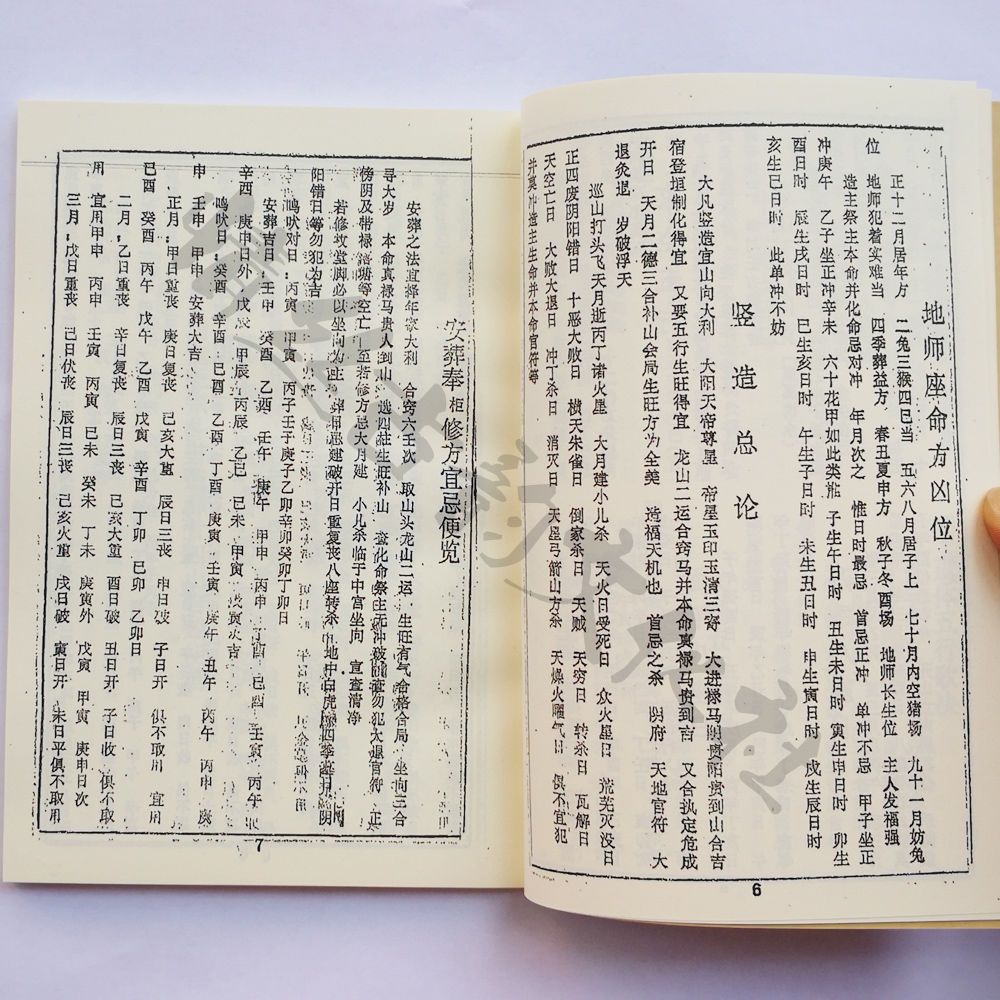 地师座命方凶位
正十二月居年方　二兔三猴四巳当　五六八月居子上　七十月内空猪场　九十一月妨兔
位　地师犯着实难当　四季葬益方　春丑夏申方　秋子冬酉场　地师长生位　主人发福强
造主祭主本命并化命忌对冲　年月次之　惟日时最忌　首忌正冲　单冲不忌　甲子坐正
冲庚午　乙子坐正冲辛未　六十花甲如此类推　子生午日时　丑生未日时　寅生申日时　卯生
酉日时　辰生戌日时　巳生亥日时　午生子日时　未生丑日时　申生寅日时　戌生辰日时
亥生巳日时　此单冲不妨
竖造总论
大凡竖造宜山向大利　大阳天帝尊星　帝星玉印玉清三奇　大进禄马阴贵阳贵到山合吉
宿登垣制化得宜　又要五行生旺得宜　龙山二运合窍马并本命真禄马贵到吉　又合执定危成
开日　天月二德三合补山会局生旺方为全美　造福天机也　首忌之杀　阴府　天地官符　大
退灸退　岁破浮天
巡山打头飞天月逝丙丁诸火星　大月建小儿杀　天火日受死日　众火星日　荒芜灭没日
正四废阴阳错日　十恶大败日　横天朱雀日　倒家杀日　天贼　天穷日　转杀日　瓦解日
天空亡日　大败大退日　冲丁杀日　消灭日　天星弓箭山方杀　天燥火曜气日　俱不宜犯
并真冲造主生命并本命官符等
6
安葬奉柩修方宜忌便览
安葬之法宜择年家大利　合窍六壬次　取山头龙山二运，生旺有气合格合局　坐向三合
寻大岁　本命真禄马贵人到山　选四柱生旺补山　化命祭主无冲破　查勿犯大退官符　正
傍阴及带禄　空亡　至若修方忌大月建　小儿杀临于中宫坐向　宜查清净
若修坟堂脚必以坐向为主　葬　忌建破开日重复丧八座转杀　地中白虎　四　阴
阳错日等勿犯为吉
鸣吠对日：丙寅　丙子壬子庚子乙卯辛卯癸卯丁卯日
安葬吉日：壬申　乙酉　壬午　庚午　甲申　丙申　丁酉　己酉　壬寅　丙午
辛酉　庚申日外　戊辰　甲辰　丙辰　乙巳　己未　甲寅　次吉
鸣吠日：癸酉　辛酉　己酉　乙酉　丁酉　壬寅　庚午　丙午　丙申　庚
申　壬申　甲申　安葬大吉
正月：甲日重丧　庚日复丧　己亥大重　辰日三丧　申日破　子日开　俱不取用　宜用
己酉　癸酉　丙午　戊午　乙酉　戊寅　辛酉　丁卯　己卯　乙卯日
二月：乙日重丧　辛日复丧　己亥大重　酉日破　丑日开　子日收　俱不取
用　宜用甲申　丙申　壬寅　丙寅　己未　癸未　丁未　庚寅外　戊寅　甲寅　庚申日次
三月：戊日重丧　己日伏丧　辰日三丧　己亥火重　戌日破　寅日开　未日平俱不取用
7